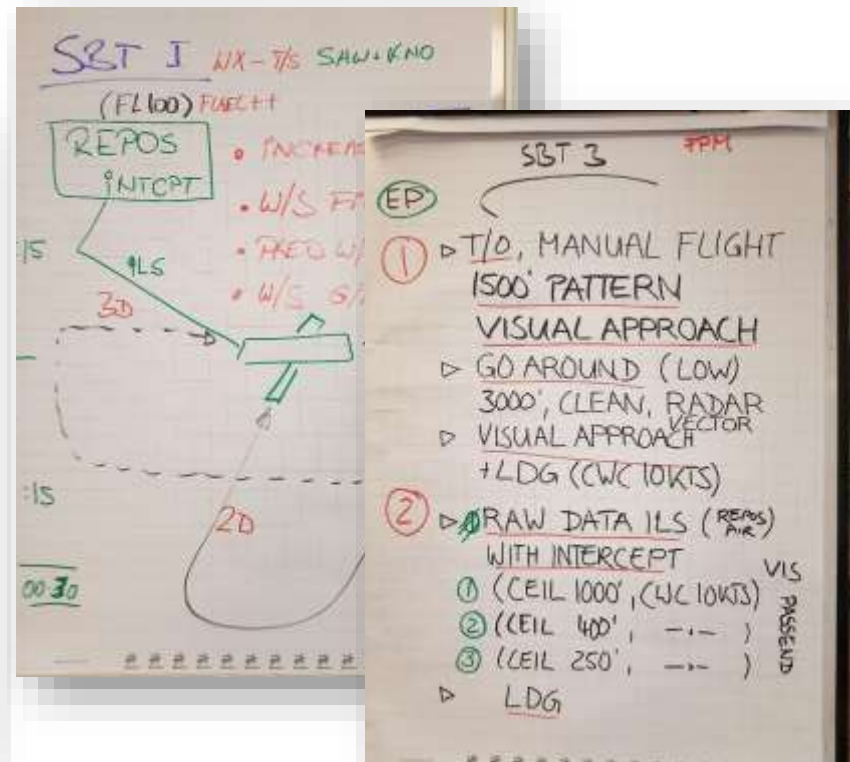 SBT I WX-T/S SAW+KNO
(FL100) FUEL++
REPOS
INTCPT
• INCREAS
• W/S
• PRED W/
• W/S G/
:15
ILS
3D
:15
2D
00:30
SBT 3 FPM
EP
① ▷ T/O, MANUAL FLIGHT
1500' PATTERN
VISUAL APPROACH
▷ GO AROUND (LOW)
3000', CLEAN, RADAR
VECTOR
▷ VISUAL APPROACH
+LDG (CWC 10KTS)
② ▷ RAW DATA ILS (REPOS AIR)
WITH INTERCEPT
① (CEIL 1000', CWC 10KTS)
② (CEIL 400', -·- )
③ (CEIL 250', -·- )
VIS PASSEND
▷ LDG